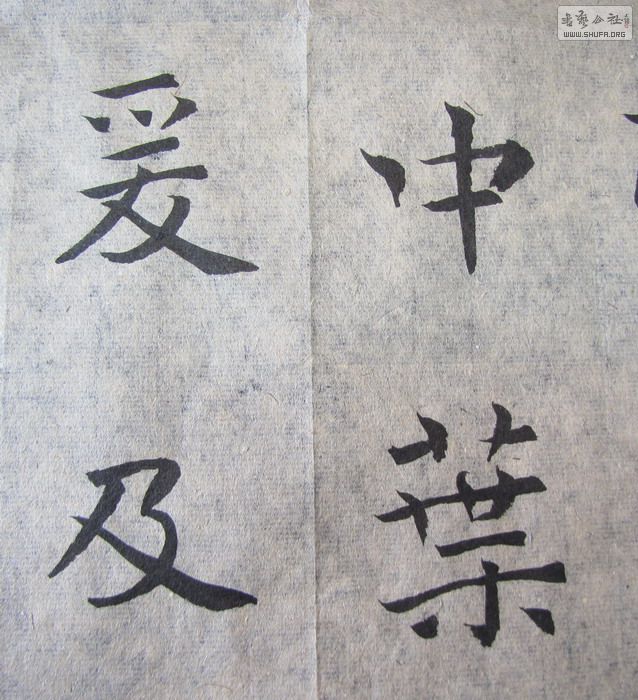 中葉
爰及
書藝公社
WWW.SHUFA.ORG